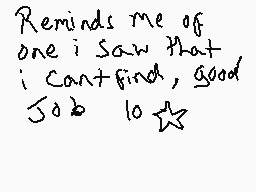 Reminds me of
one i saw that
i cant find, good
Job 10 ☆